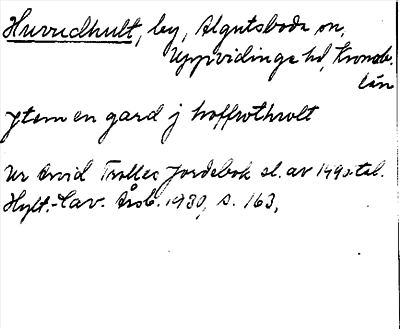 Huvudhult, by, Algutsboda sn,
Uppvidinge hd, Kronob.
län
ytem en gard j hoffwothwlt
Ur Arvid Trolles jordebok sl. av 1490 tal.
Hylt.-Cav. Årsb. 1930, s. 163,